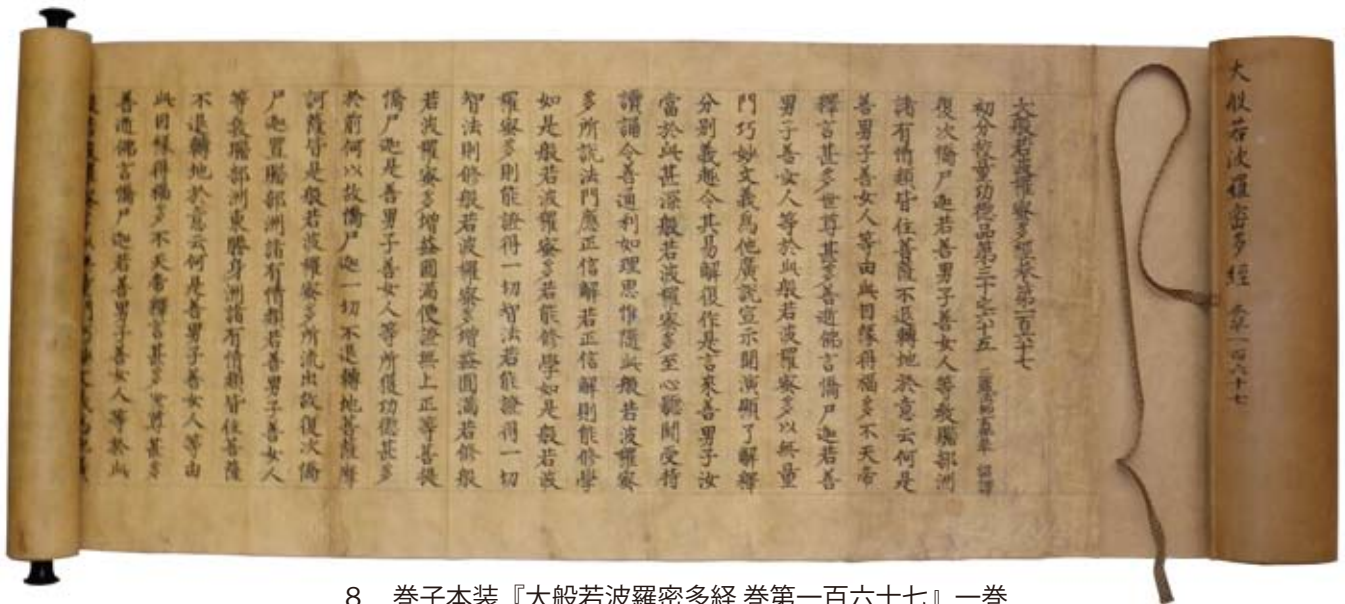 大般若波羅密多經
大般若波羅蜜多經卷第一百六十七
初分校量功德品第三十之六十五 三藏法師玄奘奉 詔譯
復次憍尸迦若善男子善女人等教贍部洲
諸有情類皆住菩薩不退轉地於意云何是
善男子善女人等由此因緣得福多不天帝
釋言甚多世尊甚多善逝佛言憍尸迦若善
男子善女人等於此般若波羅蜜多以無量
門巧妙文義為他廣說宣示開演顯了解釋
分別義趣令其易解復作是言來善男子汝
當於此甚深般若波羅蜜多至心聽聞受持
讀誦令善通利如理思惟隨此般若波羅蜜
多所說法門應正信解若正信解則能修學
如是般若波羅蜜多若能修學如是般若波
羅蜜多則能證得一切智法若能證得一切
智法則修般若波羅蜜多增益圓滿若修般
若波羅蜜多增益圓滿便證無上正等菩提
憍尸迦是善男子善女人等所獲功德甚多
於前何以故憍尸迦一切不退轉地菩薩摩
訶薩皆是般若波羅蜜多所流出故復次憍
尸迦置贍部洲諸有情類若善男子善女人
等教贍部洲東勝身洲諸有情類皆住菩薩
不退轉地於意云何是善男子善女人等由
此因緣得福多不天帝釋言甚多世尊甚多
善逝佛言憍尸迦若善男子善女人等於此
8 巻子本装『大般若波羅密多経 巻第一百六十七』一巻